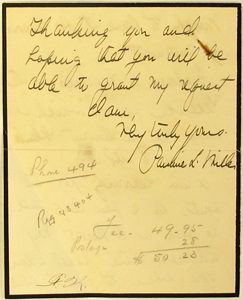 Thanking you and
hoping that you will be
able to grant my request
I am,
Very truly yours.
Pauline L. Mills
Phone 494
Reg 43404
Fee - 49.95
Postage 28
$ 50 23